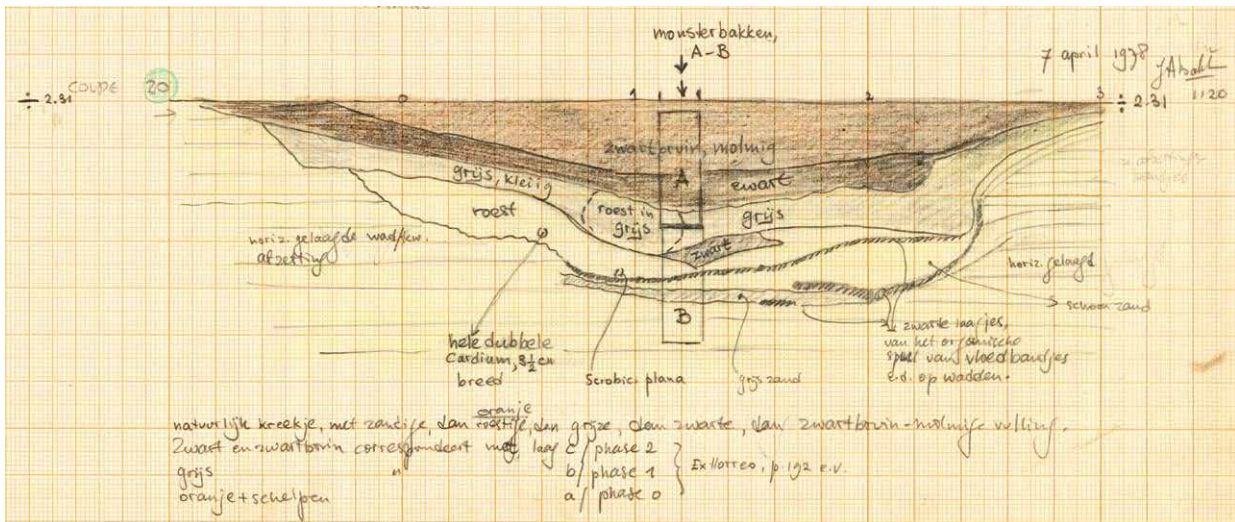 monsterbakken,
A-B
7 april 1978
1:20
COUPE 20
÷ 2.31
0
1
2
3
÷ 2.31
zwartbruin, molmig
A
zwart
grijs, kleiig
roest
roest in
grijs
grijs
zwart
horiz. gelaagde
afzetting
horiz. gelaagd
schoon zand
B
hele dubbele
Cardium, 3½ cm
breed
Scrobic. plana
grijs zand
zwarte laagjes,
van het organische
spul van vloedbandjes
e.d. op wadden.
oranje
natuurlijk kreekje, met zandige, dan roestige, dan grijze, dan zwarte, dan zwartbruin-molmige vulling.
Zwart en zwartbruin correspondeert met laag c / phase 2
grijs " b / phase 1
oranje + schelpen a / phase 0
Ex Horreo, p. 192 e.v.